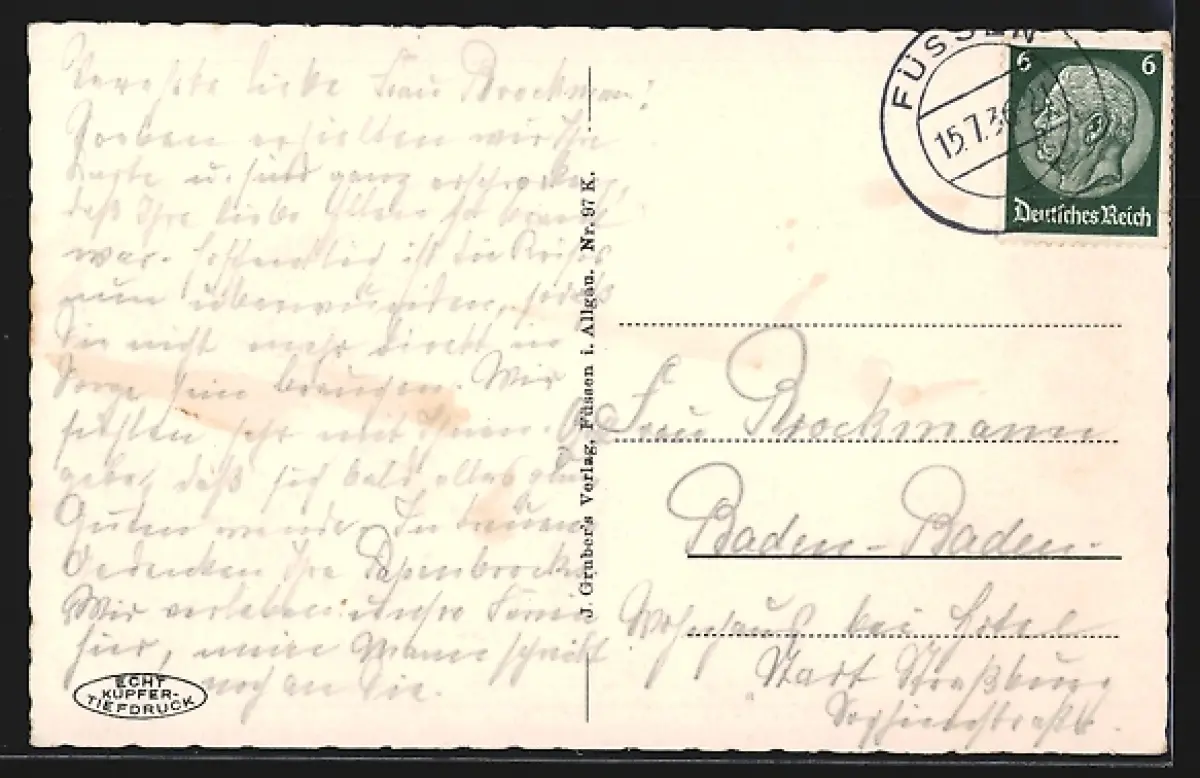 Verehrte liebe Frau Brockmann!
Soeben erhielten wir Ihre
Karte u. sind ganz erschrocken,
daß Ihre liebe so krank
war. Hoffentlich ist die Krisis
nun überwunden, sodaß
Sie nicht mehr direkt in
Sorge sein brauchen. Wir
fühlen sehr mit Ihnen.
gebe, daß sich bald alles zum
Guten wende. In treuem
Gedenken Ihre
Wir verleben unsre Ferien
hier, meine Mann schreibt
noch an Sie.
ECHT
KUPFER-
TIEFDRUCK
J. Gruber's Verlag, Füssen i. Allgäu. Nr. 97 K.
FÜSSEN
15.7.36
6 6
Deutsches Reich
Frau Brockmann
Baden-Baden.
Wohnhaus bei Hotel
Stadt Straßburg
Sophienstraße.